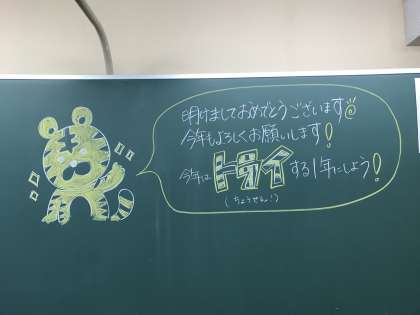 明けましておめでとうございます
今年もよろしくお願いします!
今年はトライする1年にしよう!
(ちょうせん!)